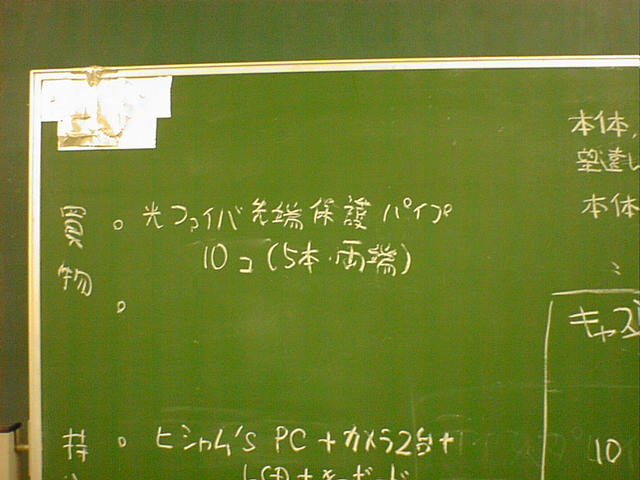 買物
。光ファイバ先端保護パイプ
10コ(5本・両端)
。
持
。ヒシャム's PC+カメラ2台+
本体,
望遠し
本体
キャス
10